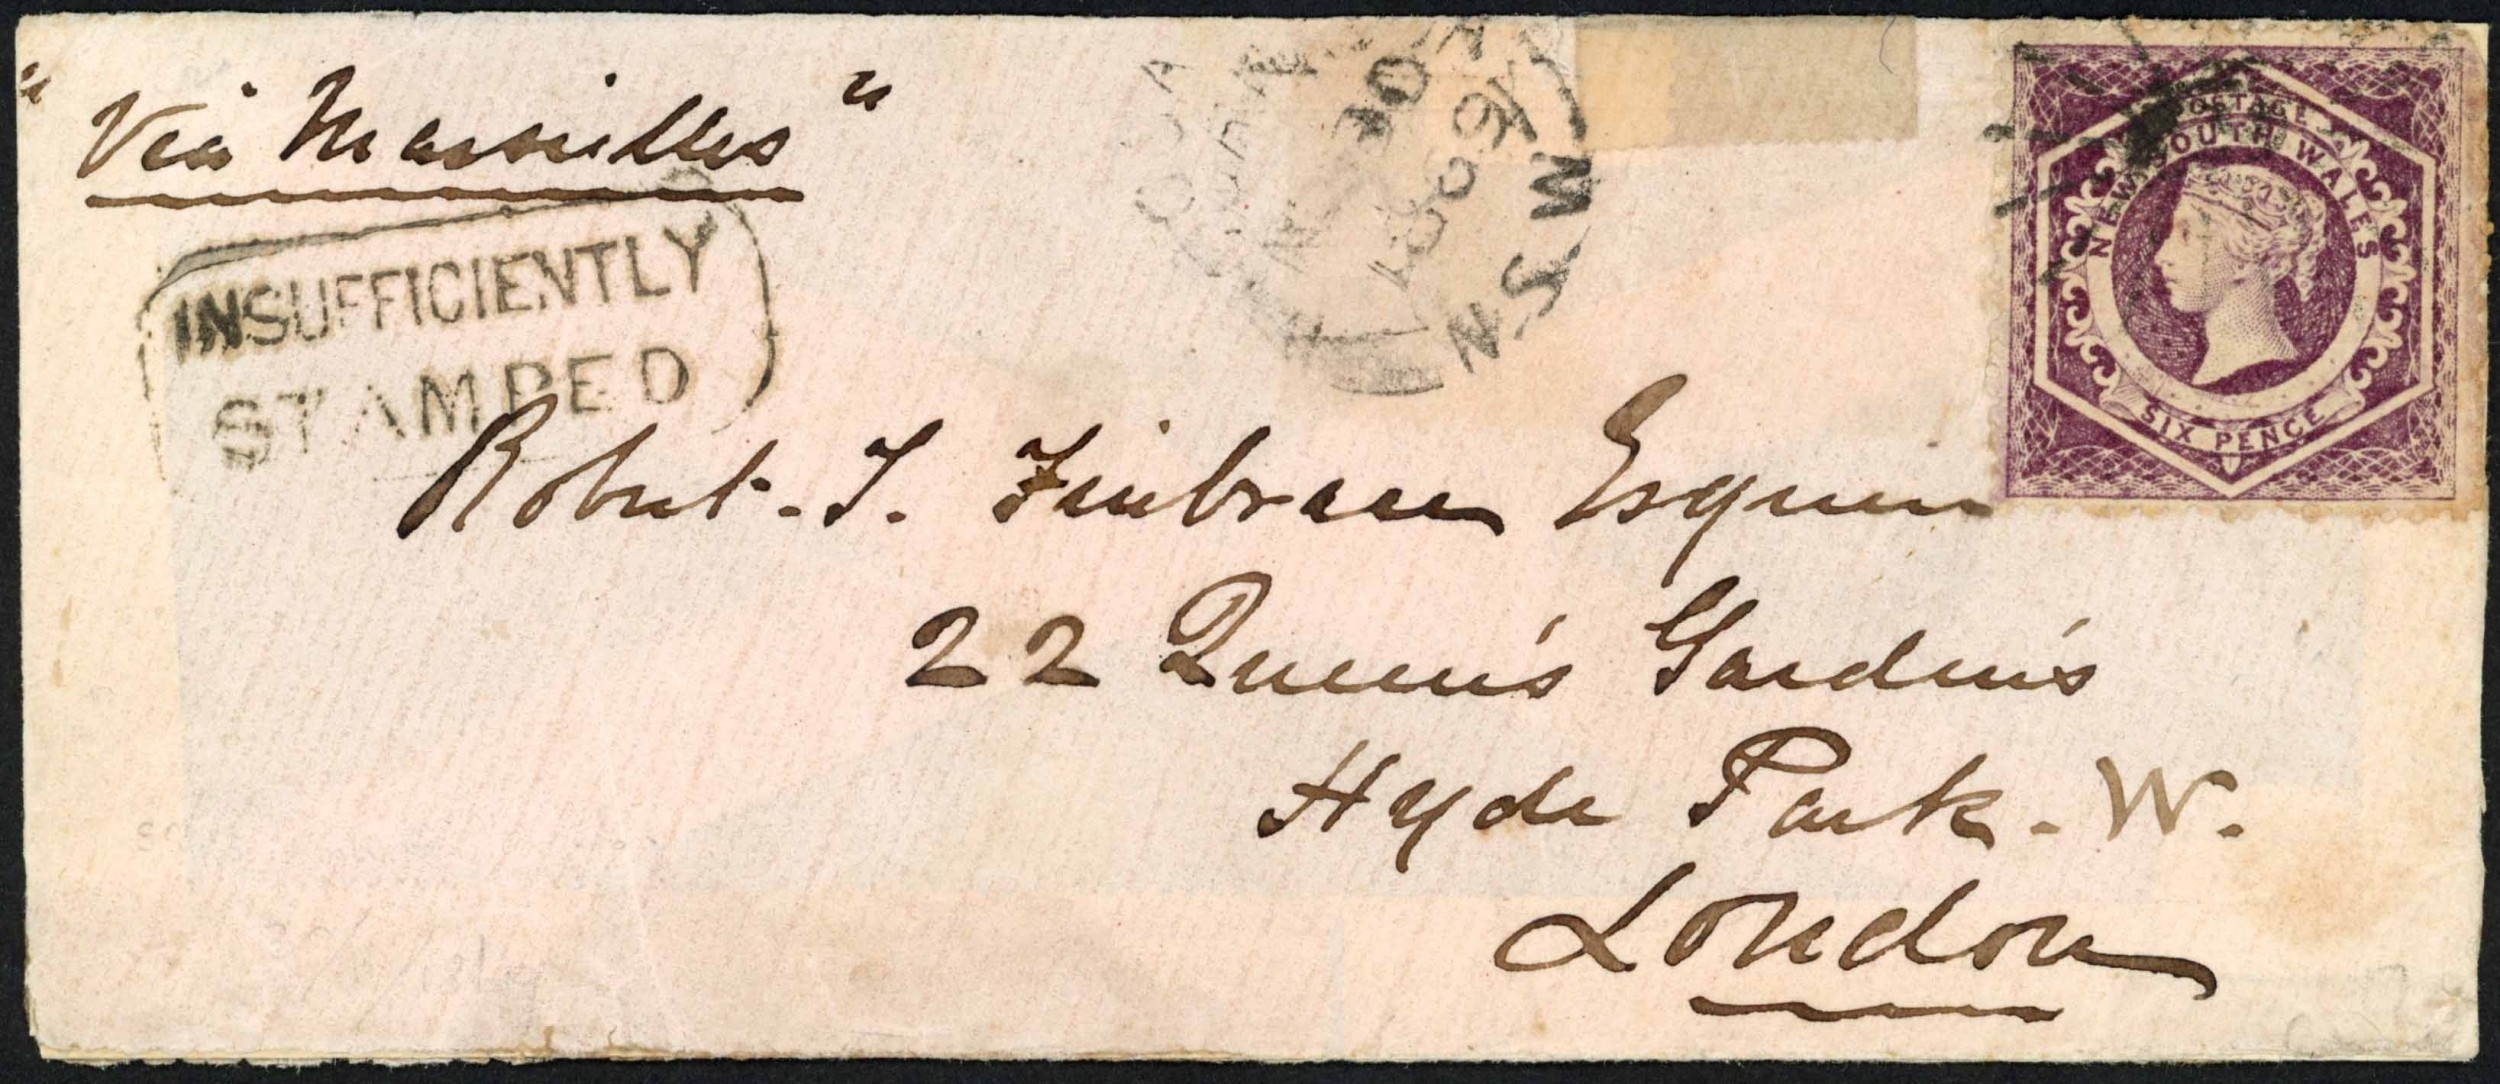 "Via Marseilles"
INSUFFICIENTLY
STAMPED
N.S.W
POSTAGE
NEW SOUTH WALES
SIX PENCE
Robert. T. Esquire
22 Queen's Garden's
Hyde Park. W.
London